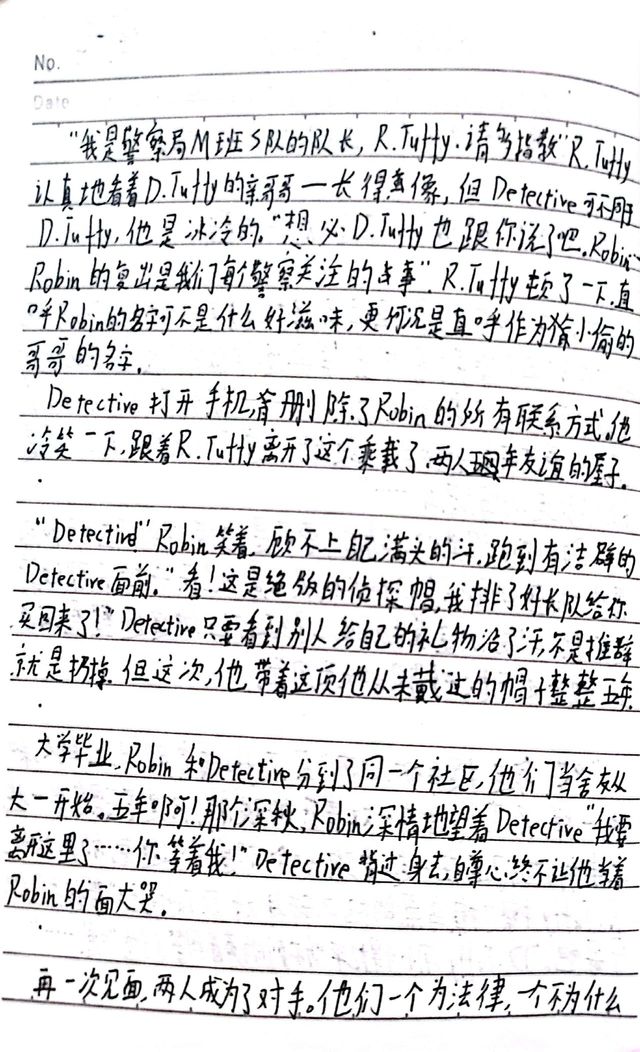 No.
Date
"我是警察局M班S队的队长, R.Tuffy.请多指教"R.Tuffy
认真地看着D.Tuffy的亲哥哥一长得真像,但Detective可不同于
D.Tuffy,他是冰冷的."想必D.Tuffy也跟你说了吧.Robin
Robin的复出是我们每个警察关注的事".R.Tuffy顿了一下.直
呼Robin的名字可不是什么好滋味,更何况是直呼作为小偷的
哥哥的名字.
Detective打开手机,删除了Robin的所有联系方式.他
冷笑一下,跟着R.Tuffy离开了这个乘载了两人年友谊的屋子.
"Detective"Robin笑着,顾不上自己满头的汗.跑到有洁癖的
Detective面前."看!这是绝版的侦探帽,我排了好长队给你
买回来了!"Detective只要看到别人给自己的礼物沾了汗,不是推辞
就是扔掉.但这次,他带着这顶他从未戴过的帽子整整五年
大学毕业,Robin和Detective分到了同一个社区,他们当舍友从
大一开始.五年啊!那个深秋,Robin深情地望着Detective"我要
离开这里了……你等着我!"Detective背过身去,自尊心终不让他当着
Robin的面大哭.
再一次见面,两人成为了对手。他们一个为法律,一个不为什么